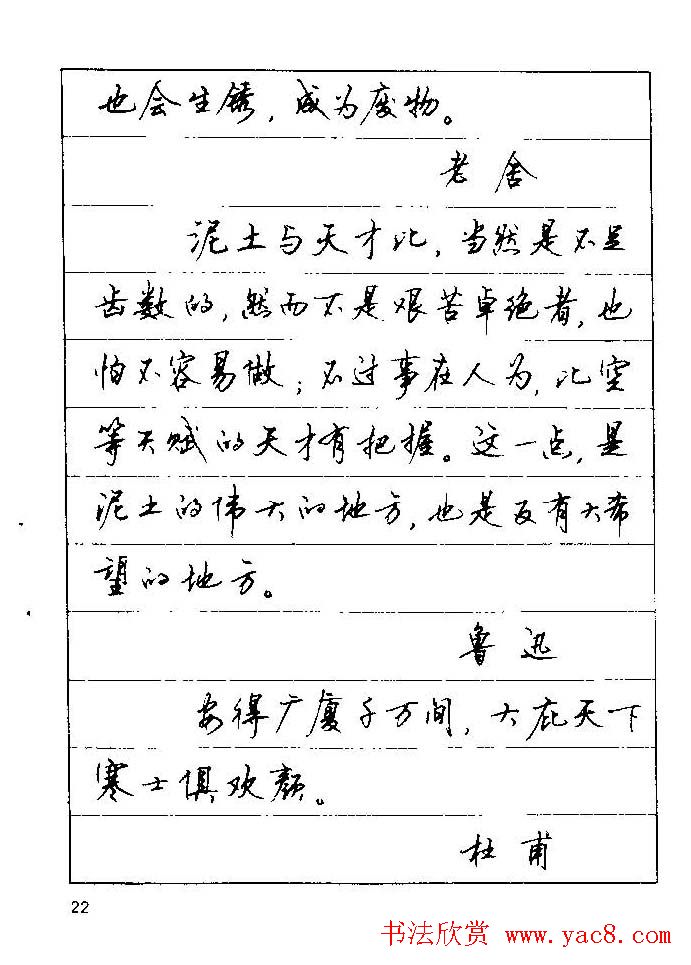 也会生锈，成为废物。
老舍
泥土与天才比，当然是不足
齿数的，然而不是艰苦卓绝者，也
怕不容易做；不过事在人为，比空
等天赋的天才有把握。这一点，是
泥土的伟大的地方，也是反有大希
望的地方。
鲁迅
安得广厦千万间，大庇天下
寒士俱欢颜。
杜甫
22
书法欣赏 www.yac8.com